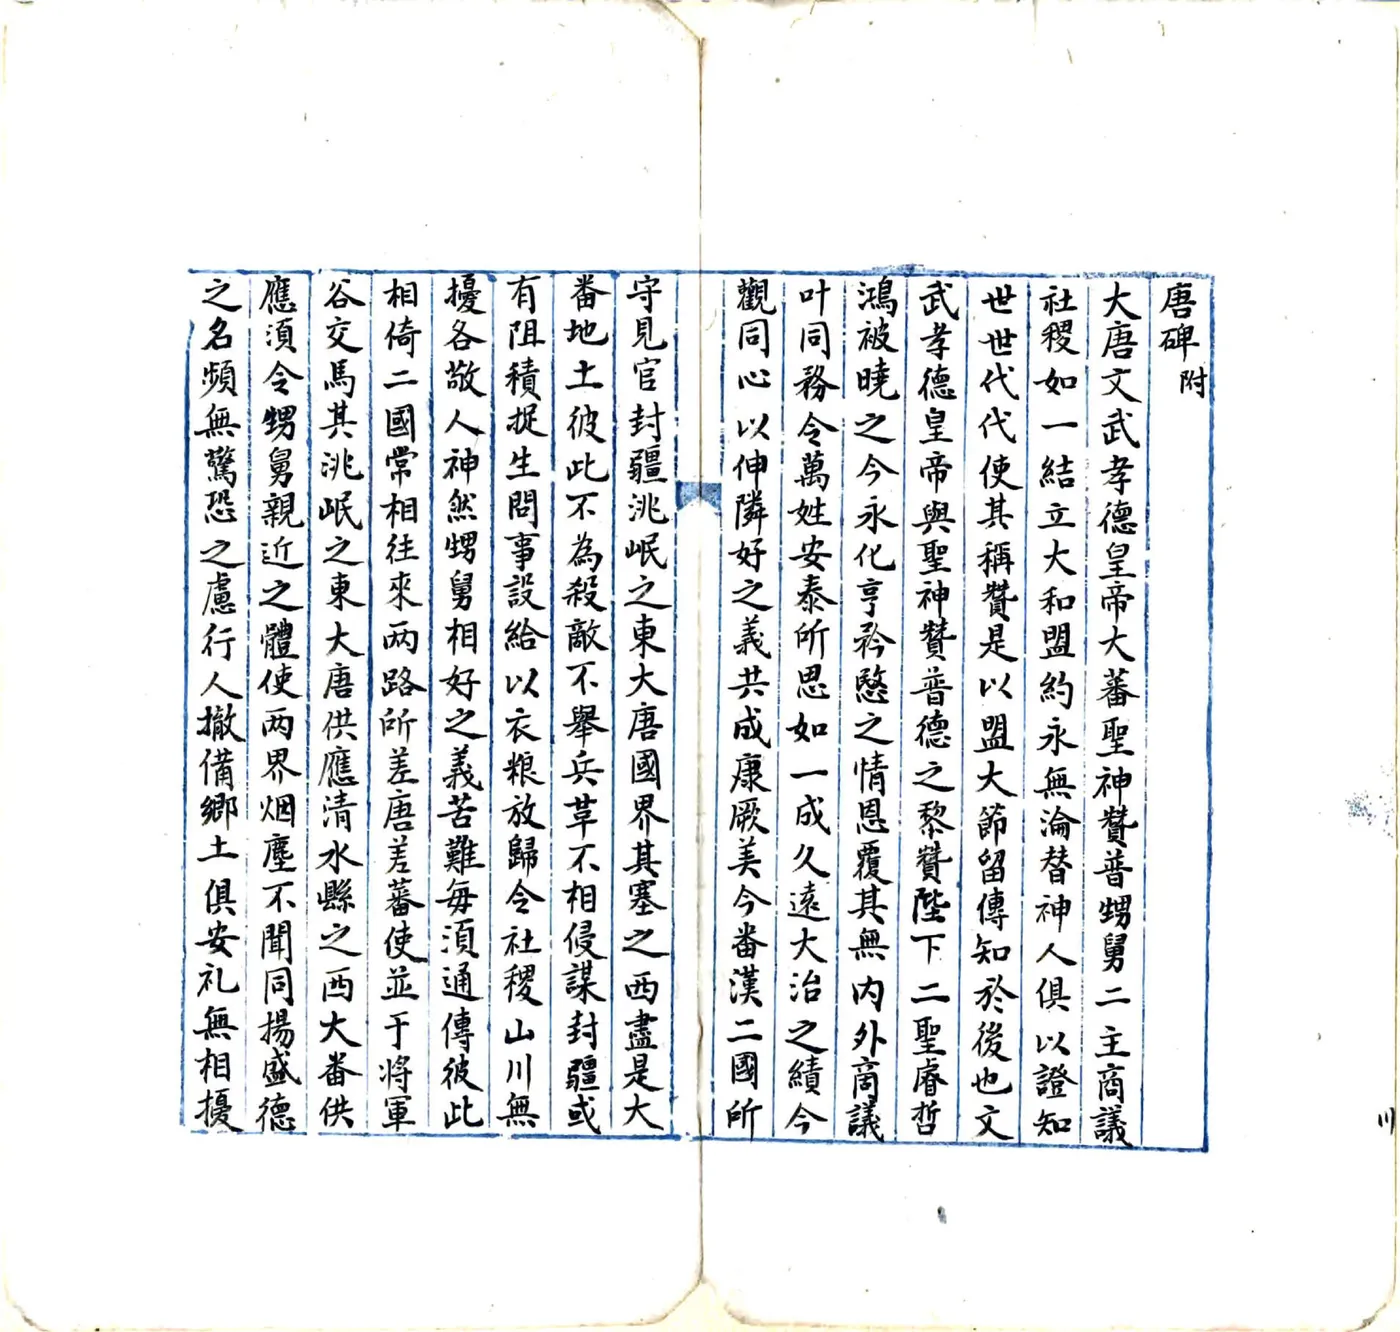 唐碑附
大唐文武孝德皇帝大蕃聖神贊普甥舅二主商議
社稷如一結立大和盟約永無淪替神人俱以證知
世世代代使其稱贊是以盟大節留傳知於後也文
武孝德皇帝與聖神贊普德之黎贊陛下二聖睿哲
鴻被曉之今永化亨矜愍之情恩覆其無內外啇議
叶同務令萬姓安泰所思如一成久遠大治之績今
觀同心以伸隣好之義共成康厥美今畨漢二國所
守見官封疆洮岷之東大唐國界其塞之西盡是大
畨地土彼此不為殺敵不舉兵革不相侵謀封疆或
有阻積捉生問事設給以衣粮放歸令社稷山川無
擾各敬人神然甥舅相好之義苦難每須通傳彼此
相倚二國常相往來两路所差唐差蕃使並于将軍
谷交馬其洮岷之東大唐供應清水縣之西大畨供
應須令甥舅親近之體使两界烟塵不聞同揚盛德
之名頻無驚恐之慮行人撤備鄉土俱安礼無相擾
川